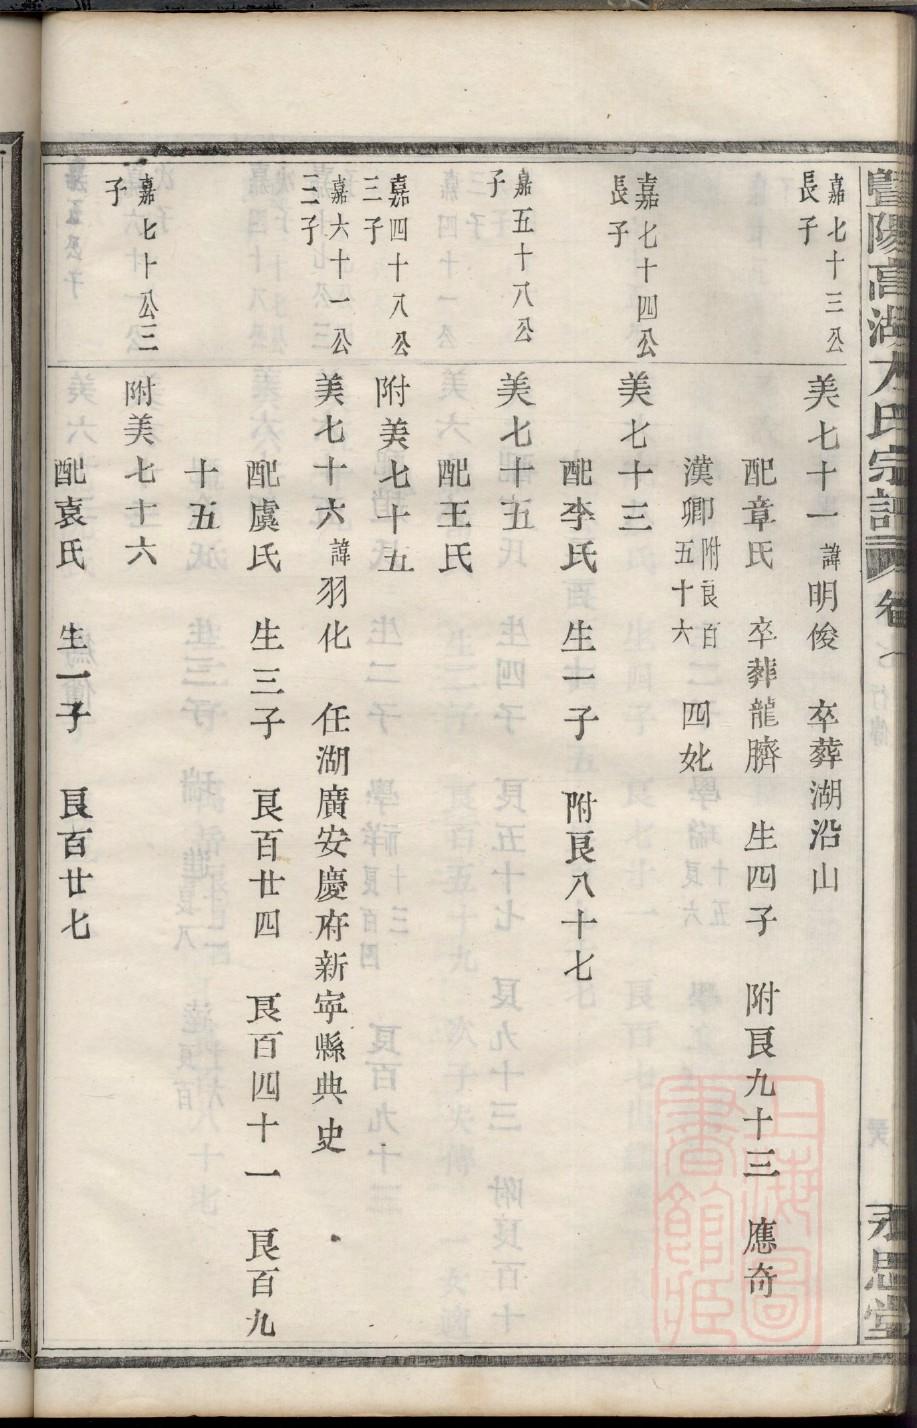 暨陽高湖方氏宗譜 卷
永思堂
嘉七十三公長子
美七十一 諱明俊 卒葬湖沿山
配章氏 卒葬龍臍 生四子 附良九十三 應奇
漢卿附良百五十六 四妣
嘉七十四公長子
美七十三
配李氏 生一子 附良八十七
嘉五十八公子
美七十五
配王氏
嘉四十八公三子
附美七十五
嘉六十一公二子
美七十六 諱羽化 任湖廣安慶府新寧縣典史
配虞氏 生三子 良百廿四 良百四十一 良百九
十五
嘉七十公三子
附美七十六
配袁氏 生一子 良百廿七
上海圖書館藏